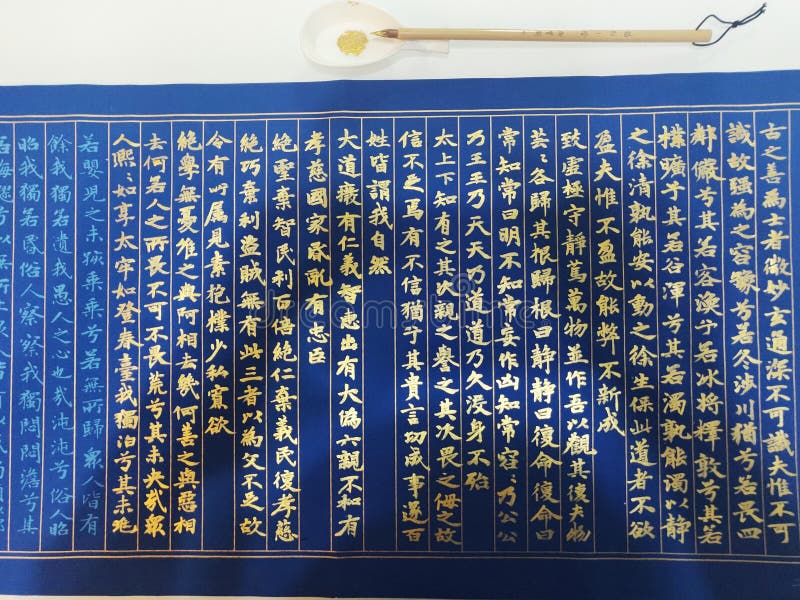 古之善為士者微妙玄通深不可識夫惟不可
識故強為之容豫兮若冬涉川猶兮若畏四
鄰儼兮其若客渙兮若冰將釋敦兮其若
樸曠兮其若谷渾兮其若濁孰能濁以靜
之徐清孰能安以動之徐生保此道者不欲
盈夫惟不盈故能弊不新成
致虛極守靜篤萬物並作吾以觀其復夫物
芸〻各歸其根歸根曰靜靜曰復命復命曰
常知常曰明不知常妄作凶知常容〻乃公公
乃王王乃天天乃道道乃久没身不殆
太上下知有之其次親之譽之其次畏之侮之故
信不足焉有不信猶兮其貴言功成事遂百
姓皆謂我自然
大道廢有仁義智惠出有大偽六親不和有
孝慈國家昬亂有忠臣
絕聖棄智民利百倍絕仁棄義民復孝慈
絕巧棄利盜賊無有此三者以為文不足故
令有所属見素抱樸少私寡欲
絕學無憂唯之與阿相去幾何善之與惡相
去何若人之所畏不可不畏荒兮其未央哉衆
人熙〻如享太牢如登春臺我獨泊兮其未兆
若嬰兒之未孩乘乘兮若無所歸衆人皆有
餘我獨若遺我愚人之心也哉沌沌兮俗人昭
昭我獨若昏俗人察察我獨悶悶澹兮其
dreamstime